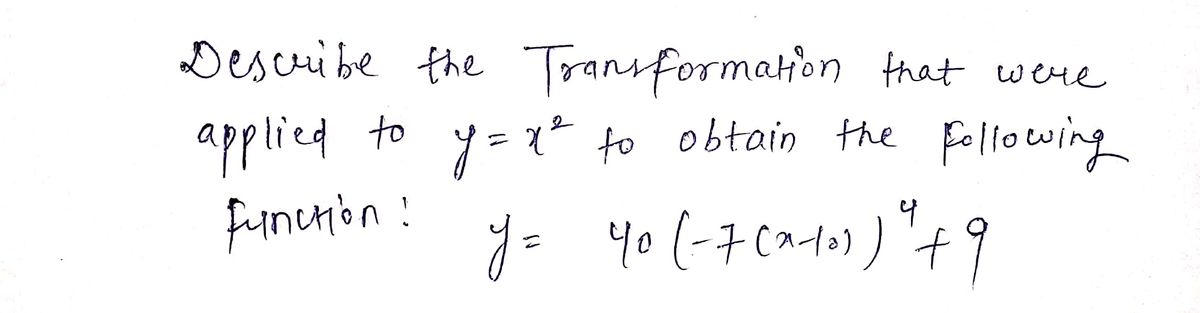 Describe the Transformation that were
applied to y = x² to obtain the following
function:
y = 40 (-7(x-10))⁴ + 9